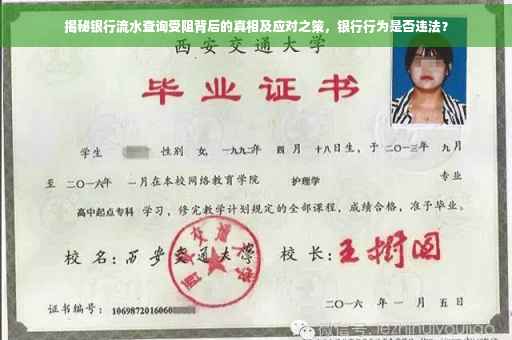 揭秘银行流水查询受阻背后的真相及应对之策，银行行为是否违法？
西安交通大学
毕业证书
学生 性别 女，一九九二年 四月 十八日生，于二〇一三年 九月
至 二〇一六年 一月在本校网络教育学院 护理学 专业
高中起点专科 学习，修完教学计划规定的全部课程，成绩合格，准予毕业。
校 名：西安交通大学 校 长：王树国
西安交通大学
证书编号：1069872016060
二〇一六 年 一 月 五 日
微信号: jezhihuiyoujiao